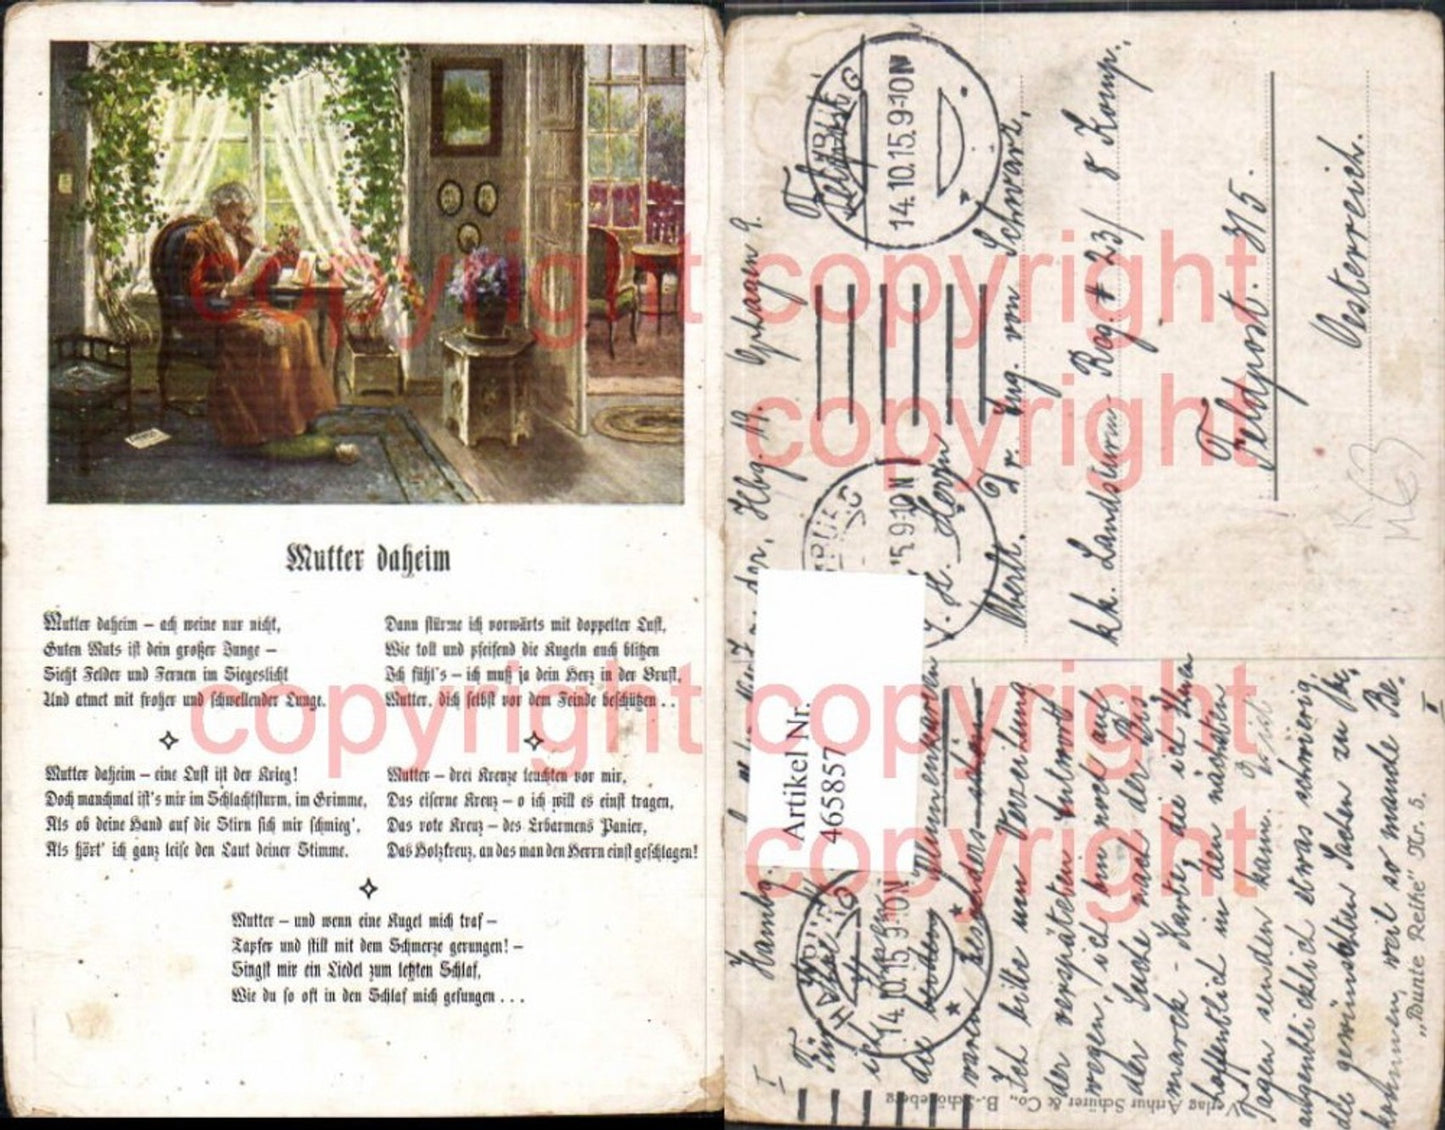 Mutter daheim
Mutter daheim – ach weine nur nicht,
Guten Muts ist dein großer Junge –
Sieht Felder und Fernen im Siegeslicht
Und atmet mit froher und schwellender Lunge.
Dann stürme ich vorwärts mit doppelter Lust,
Wie toll und pfeifend die Kugeln auch blitzen
Ich fühl's – ich muß ja dein Herz in der Brust,
Mutter, dich selbst vor dem Feinde beschützen . .
Mutter daheim – eine Lust ist der Krieg!
Doch manchmal ist's mir im Schlachtsturm, im Grimme,
Als ob deine Hand auf die Stirn sich mir schmieg',
Als hört' ich ganz leise den Laut deiner Stimme.
Mutter – drei Kreuze leuchten vor mir,
Das eiserne Kreuz – o ich will es einst tragen,
Das rote Kreuz – des Erbarmens Panier,
Das Holzkreuz, an das man den Herrn einst geschlagen!
Mutter – und wenn eine Kugel mich traf –
Tapfer und still mit dem Schmerze gerungen! –
Singst mir ein Liedel zum letzten Schlaf,
Wie du so oft in den Schlaf mich gesungen . . .
copyright copyright
copyright
copyright copyright
copyright
Artikel Nr.
465857
HARBURG
14.10.15.9-10N
14.10.15.9-10N
15.9-10N
Feldpost
Herrn
Dr. Ing. von Schwarz,
kk. Landsturm- Reg. # 23/ 8 Komp.,
Feldpost. 315.
Österreich.
I
Für
ich
die beiden Blumenkarten
waren besonders schön.
Ich bitte um Verzeihung
der verspäteten Antwort
wegen, ich bin erst auf
der Suche nach der Dis
marck-Karte, die ich Ihnen
hoffentlich in den nächsten
Tagen senden kann. Es ist
augenblicklich etwas schwierig,
alle gewünschten Sachen zu be-
kommen, weil so manche Be-
I
„Bunte Reihe" Nr. 5.
Verlag Arthur Schürer & Co., B.-Schöneberg